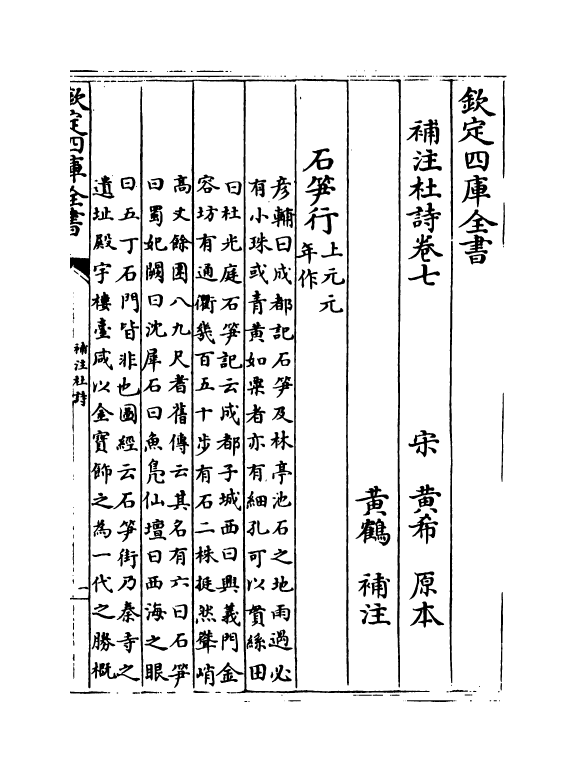 欽定四庫全書
補注杜詩卷七
宋 黃希 原本
黃鶴 補注
石笋行上元元
年作
彥輔曰成都記石笋及林亭池石之地雨過必
有小珠或青黃如粟者亦有細孔可以貫絲田
曰杜光庭石笋記云成都子城西曰興義門金
容坊有通衢幾百五十步有石二株挺然聳峭
高丈餘圍八九尺耆舊傳云其名有六曰石笋
曰蜀妃闕曰沈犀石曰魚鳧仙壇曰西海之眼
曰五丁石門皆非也圖經云石笋街乃秦寺之
遺址殿宇樓臺咸以金寶飾之為一代之勝概
欽定四庫全書
補注杜詩
一